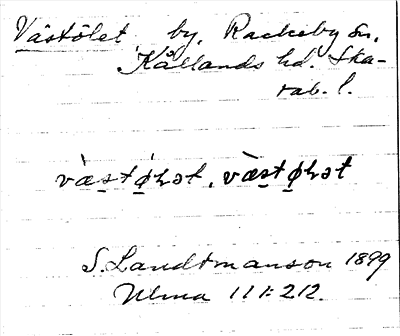 Västölet by, Rackeby sn,
Kållands hd. Ska-
rab. l.
væ̀stǿⱨət, væ̀støⱨət
S. Landtmanson 1899
Ulma 111:212.